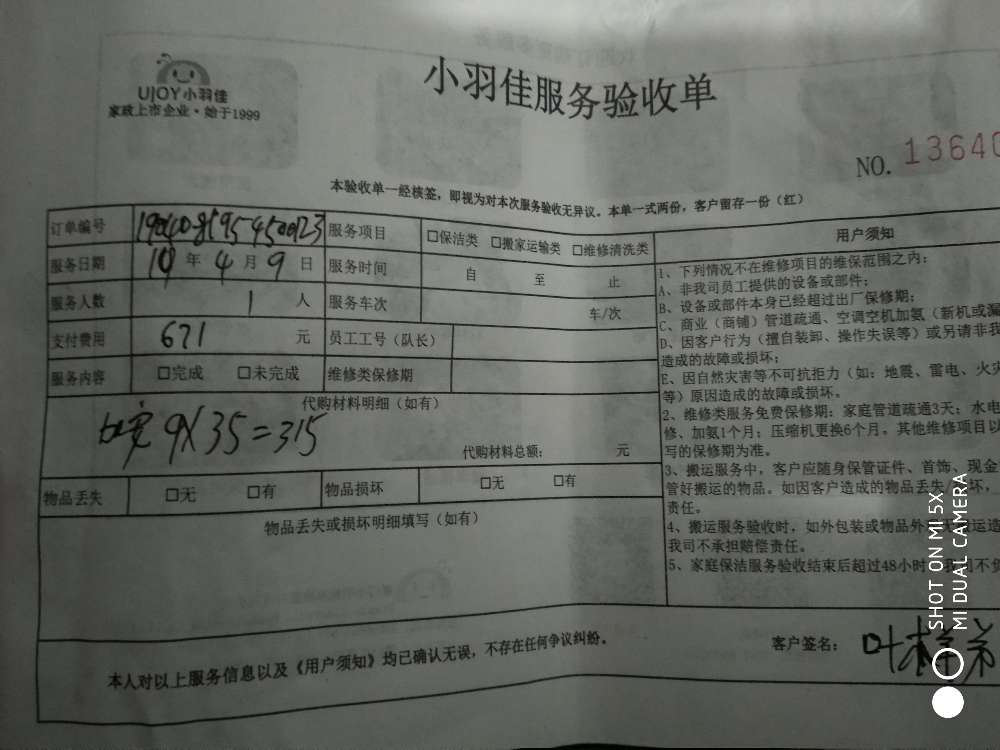 UJOY小羽佳
家政上市企业·始于1999
小羽佳服务验收单
NO. 13640
本验收单一经核签，即视为对本次服务验收无异议。本单一式两份，客户留存一份（红）
订单编号 服务项目 □保洁类 □搬家运输类 □维修清洗类
服务日期 年 4 月 9 日 服务时间 自 至 止
服务人数 1 人 服务车次 车/次
支付费用 671 元 员工工号（队长）
服务内容 □完成 □未完成 维修类保修期
代购材料明细（如有）
9X35=315
代购材料总额： 元
物品丢失 □无 □有 物品损坏 □无 □有
物品丢失或损坏明细填写（如有）
用户须知
1、下列情况不在维修项目的维保范围之内：
A、非我司员工提供的设备或部件；
B、设备或部件本身已经超过出厂保修期；
C、商业（商铺）管道疏通、空调空机加氨（新机或漏
D、因客户行为（擅自装卸、操作失误等）或另请非我
造成的故障或损坏；
E、因自然灾害等不可抗拒力（如：地震、雷电、火灾
等）原因造成的故障或损坏。
2、维修类服务免费保修期：家庭管道疏通3天；水电
修、加氨1个月；压缩机更换6个月。其他维修项目以
写的保修期为准。
3、搬运服务中，客户应随身保管证件、首饰、现金
管好搬运的物品。如因客户造成的物品丢失/坏，
责任。
4、搬运服务验收时，如外包装或物品外 无 运造
我司不承担赔偿责任。
5、家庭保洁服务验收结束后超过48小时 不负
本人对以上服务信息以及《用户须知》均已确认无误，不存在任何争议纠纷。
客户签名： 叶
SHOT ON MI 5X
MI DUAL CAMERA